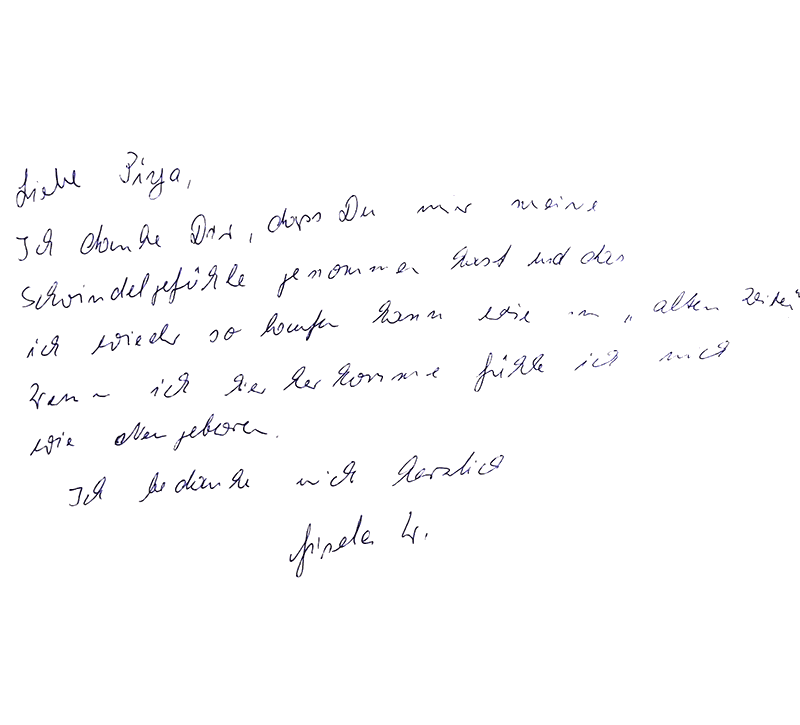 Liebe Piya,
Ich danke Dir, dass Du mir meine
Schwindelgefühle genommen hast und das
ich wieder so laufen kann wie in „alten Zeiten"
Wenn ich hier her komme fühle ich mich
wie geboren.
Ich bedanke mich herzlich
Gisela W.